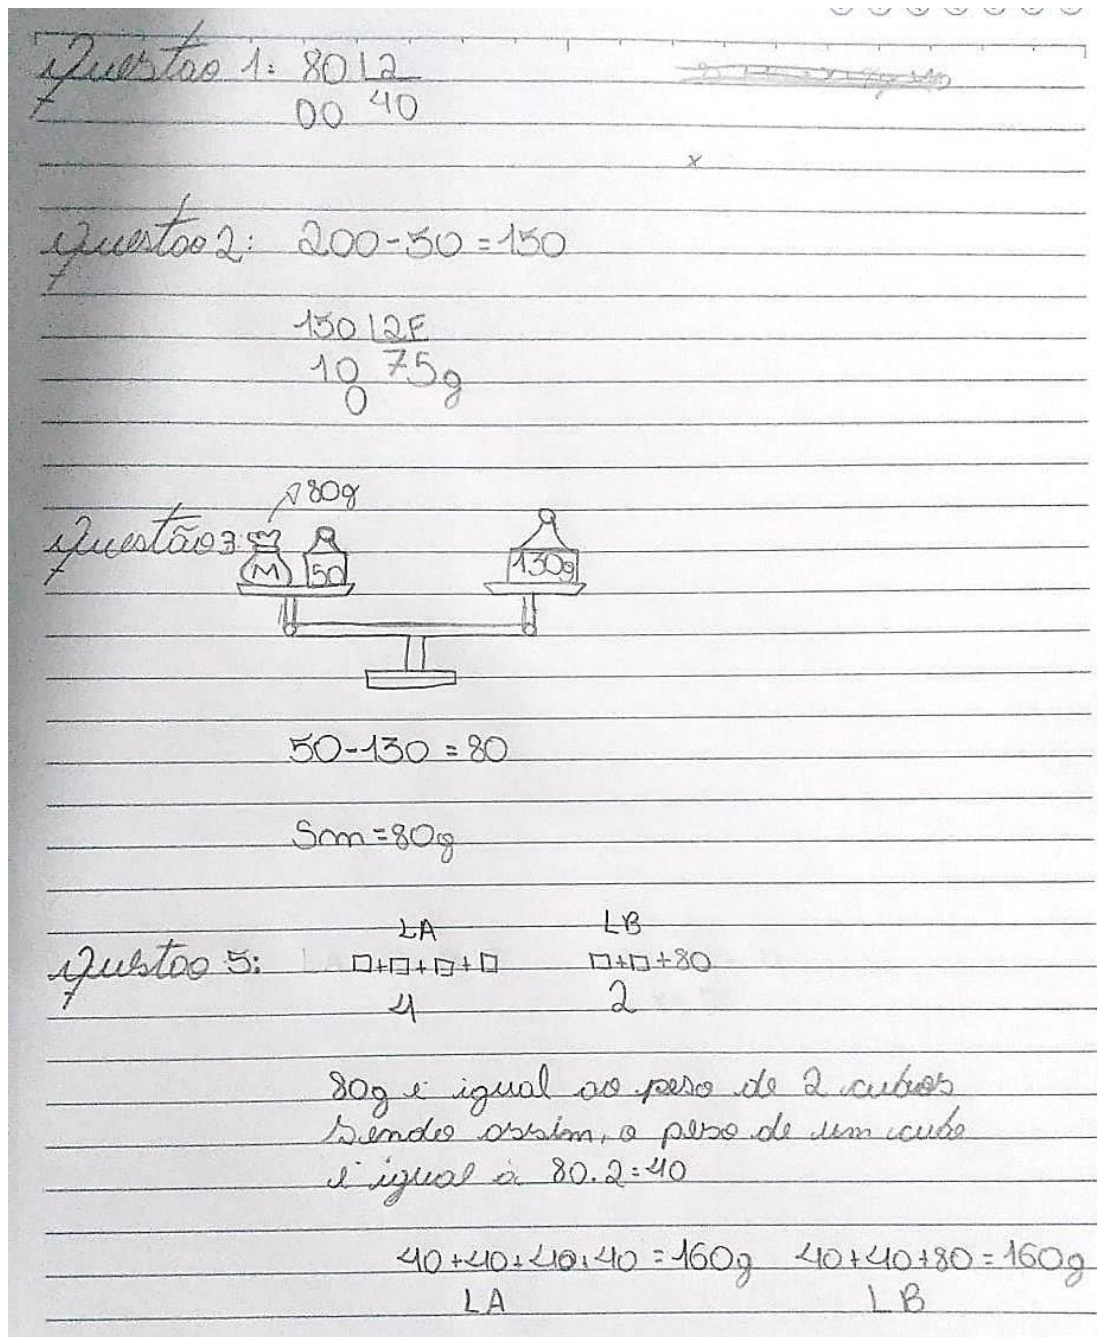 Questão 1: 80 |2
00 40
x
Questão 2: 200-50=150
150 |2F
10 75g
0
80g
Questão 3:
M 50 130g
50-130=80
Sm=80g
LA LB
Questão 5: □+□+□+□ □+□+80
4 2
80g é igual ao peso de 2 cubos
sendo assim, o peso de um cubo
é igual à 80.2=40
40+40+40+40=160g 40+40+80=160g
LA LB